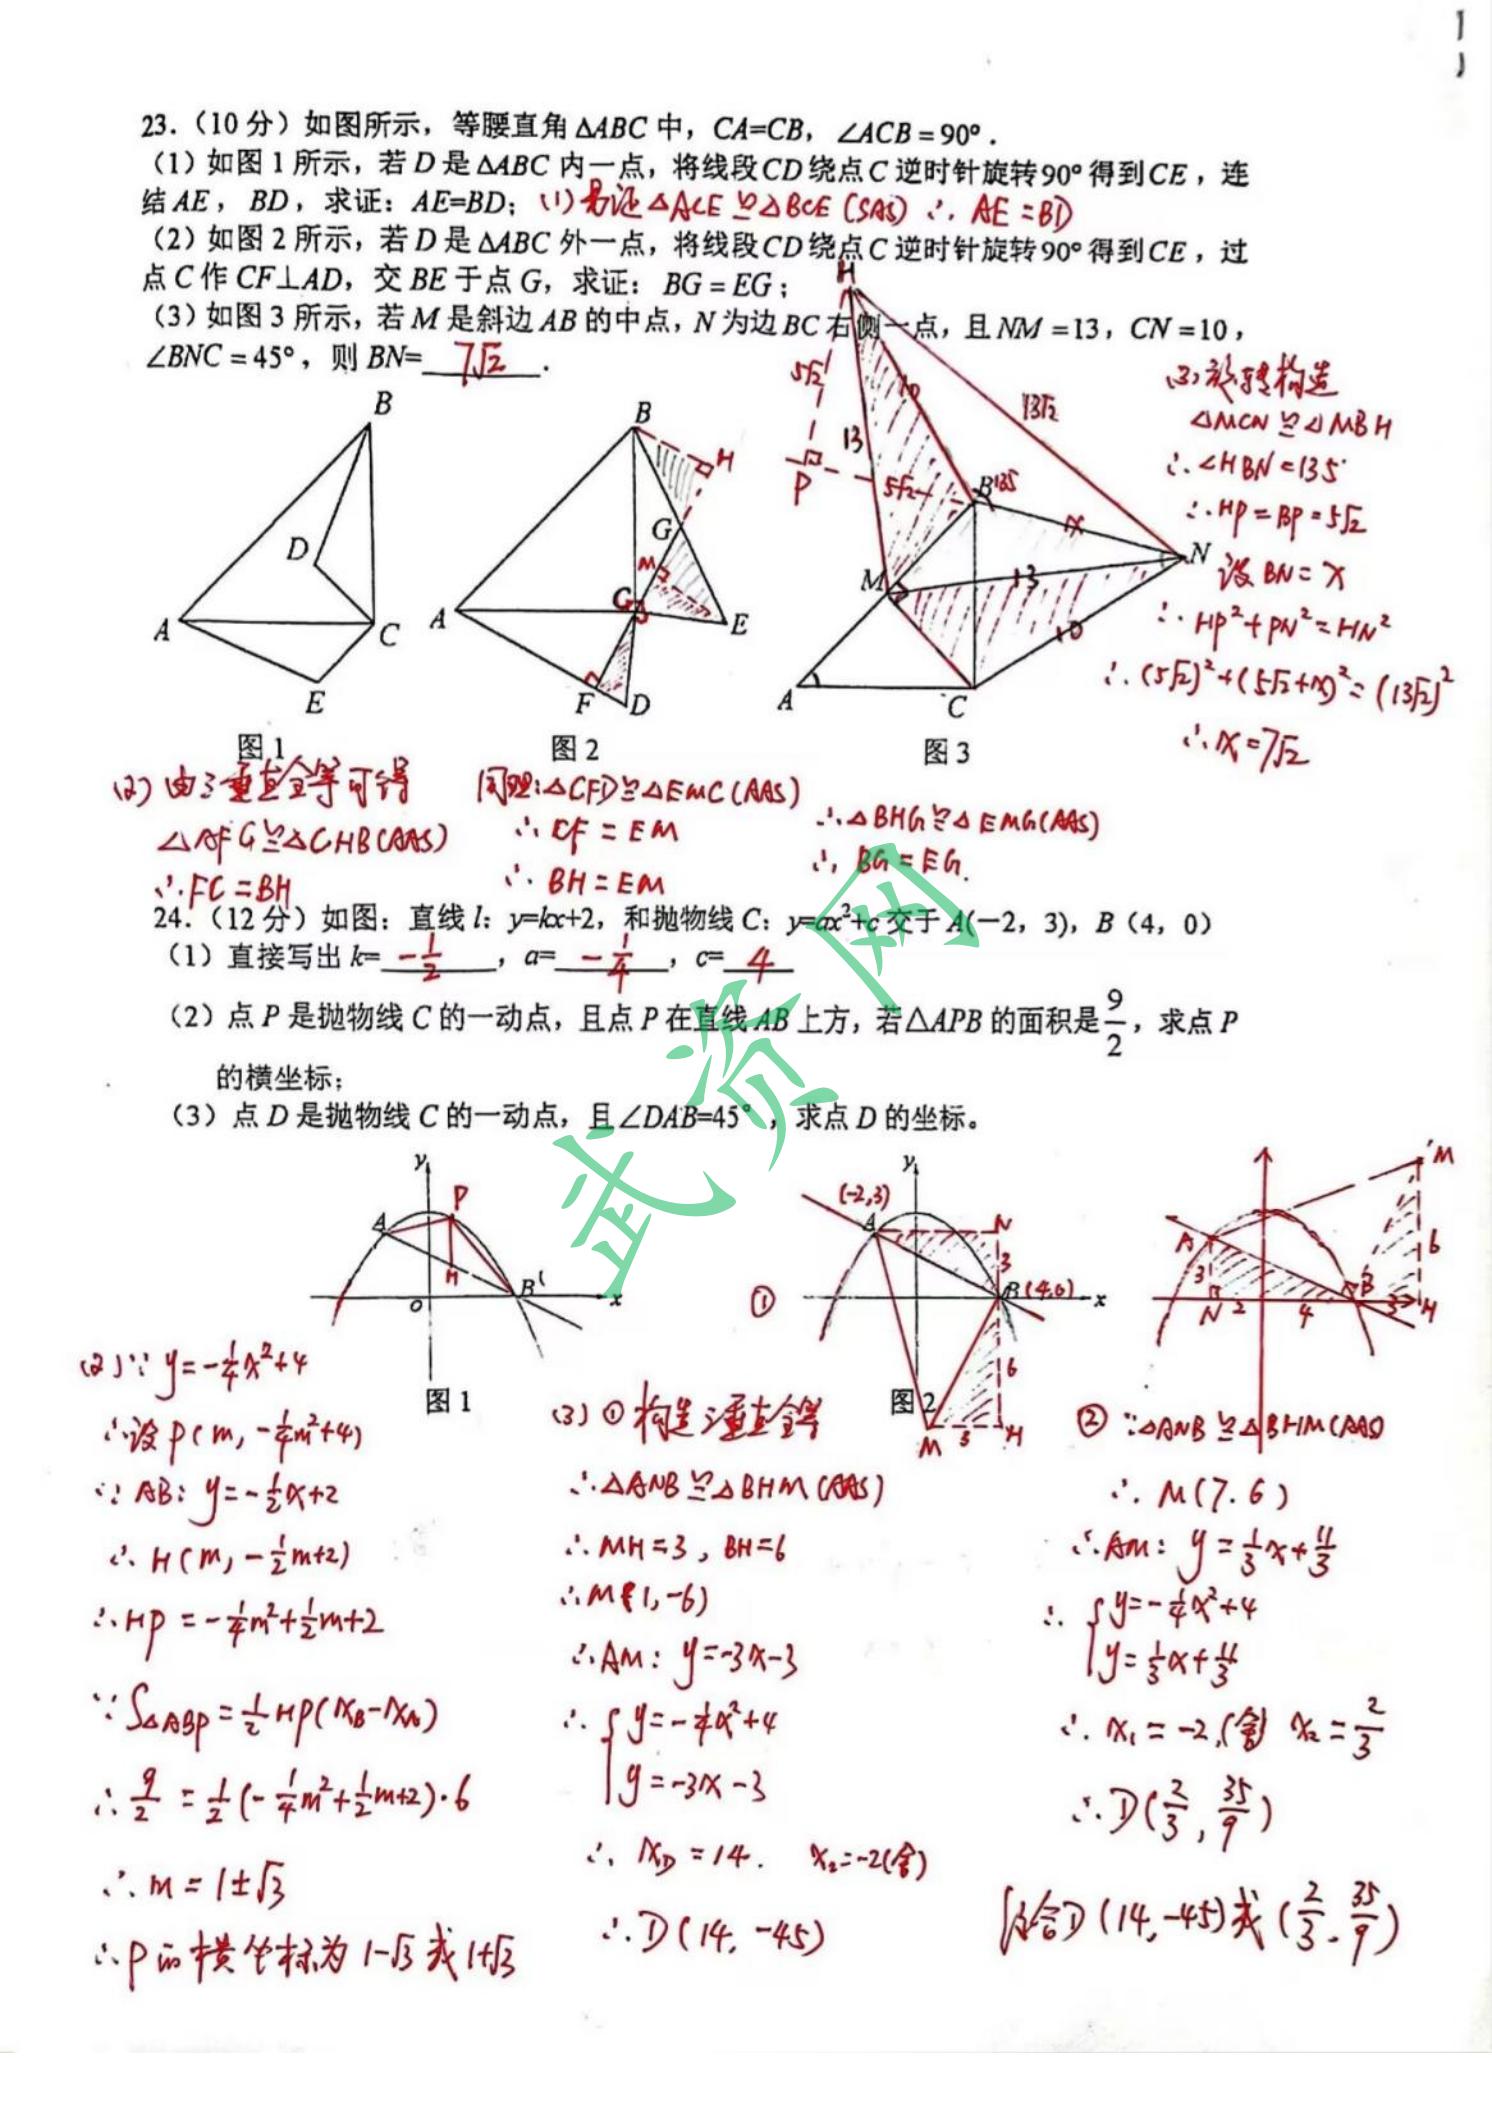 23.（10分）如图所示，等腰直角△ABC 中，CA=CB，∠ACB=90°．
（1）如图1所示，若D是△ABC 内一点，将线段CD绕点C逆时针旋转90°得到CE，连
结AE，BD，求证：AE=BD；(1)易证△ACE≌△BCE(SAS) ∴AE=BD
（2）如图2所示，若D是△ABC 外一点，将线段CD绕点C逆时针旋转90°得到CE，过
点C作CF⊥AD，交BE于点G，求证：BG=EG；
（3）如图3所示，若M是斜边AB的中点，N为边BC右侧一点，且NM=13，CN=10，
∠BNC=45°，则BN= 7√2 ．
(3)旋转构造
△MCN≌△MBH
∴∠HBN=135°
∴HP=BP=5√2
设BN=x
∵HP²+PN²=HN²
∴(5√2)²+(5√2+x)²=(13√2)²
∴x=7√2
A B C D E
图1
A B C D E F G H M
图2
A B C M N H P 5√2 13 10 13√2 5√2 135 x 13 10
图3
(2)由三垂直全等可得
△AFG≌△CHB(AAS)
∴FC=BH
同理:△CFD≌△EMC(AAS)
∴CF=EM
∴BH=EM
∴△BHG≌△EMG(AAS)
∴BG=EG.
24.（12分）如图：直线l：y=kx+2，和抛物线C：y=ax²+c交于A(−2，3)，B（4，0）
（1）直接写出k= -1/2 ，a= -1/4 ，c= 4
（2）点P是抛物线C的一动点，且点P在直线AB上方，若△APB的面积是9/2，求点P
的横坐标；
（3）点D是抛物线C的一动点，且∠DAB=45°，求点D的坐标。
武资网
y A P H B O x
图1
① y (-2,3) A N 3 B(4,0) x 6 M 3 H
图2
M A 3 N 2 4 B 3 H 6
(2)∵y=-1/4x²+4
∴设P(m, -1/4m²+4)
∵AB: y=-1/2x+2
∴H(m, -1/2m+2)
∴HP=-1/4m²+1/2m+2
∵S△ABP=1/2HP(xB-xA)
∴9/2=1/2(-1/4m²+1/2m+2)·6
∴m=1±√3
∴P的横坐标为1-√3或1+√3
(3)①构造三垂直全等
∴△ANB≌△BHM(AAS)
∴MH=3, BH=6
∴M(1,-6)
∴AM: y=-3x-3
∴{y=-1/4x²+4
y=-3x-3
∴xD=14. x₂=-2(舍)
∴D(14, -45)
②∵△ANB≌△BHM(AAS)
∴M(7.6)
∴AM: y=1/3x+11/3
∴{y=-1/4x²+4
y=1/3x+11/3
∴x₁=-2,(舍) x₂=2/3
∴D(2/3, 35/9)
综合D(14,-45)或(2/3, 35/9)